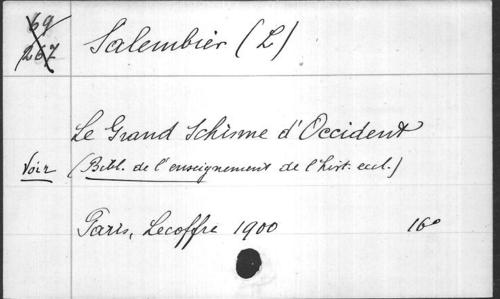 69
267
Salembier (L)
Le Grand Schisme d'Occident
Voir (Bibl. de l'enseignement de l'hist. eccl.)
Paris, Lecoffre 1900 16°